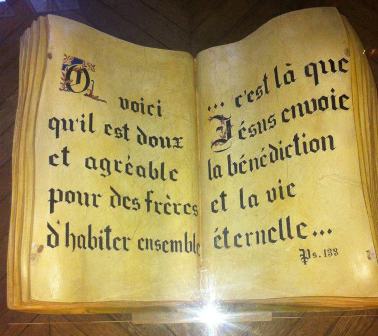 O voici
qu'il est doux
et agréable
pour des frères
d'habiter ensemble
... c'est là que
Jésus envoie
la bénédiction
et la vie
éternelle...
Ps. 133